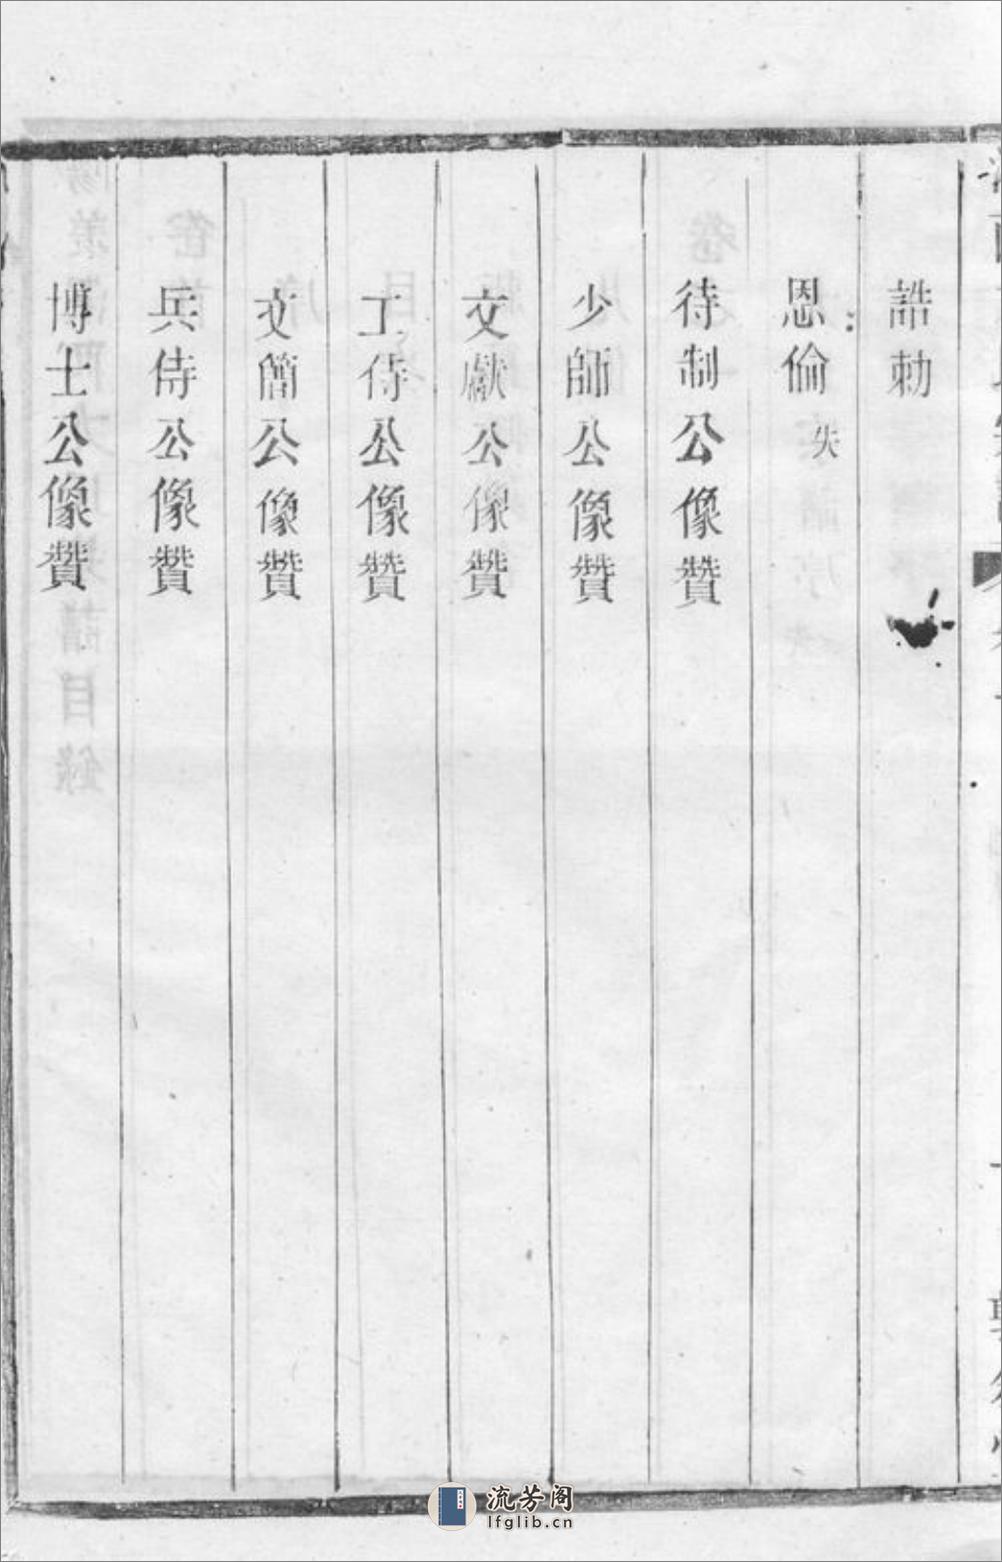 誥勅
恩倫失
待制公像贊
少師公像贊
文獻公像贊
工侍公像贊
文簡公像贊
兵侍公像贊
博士公像贊
流芳阁
lfglib.cn